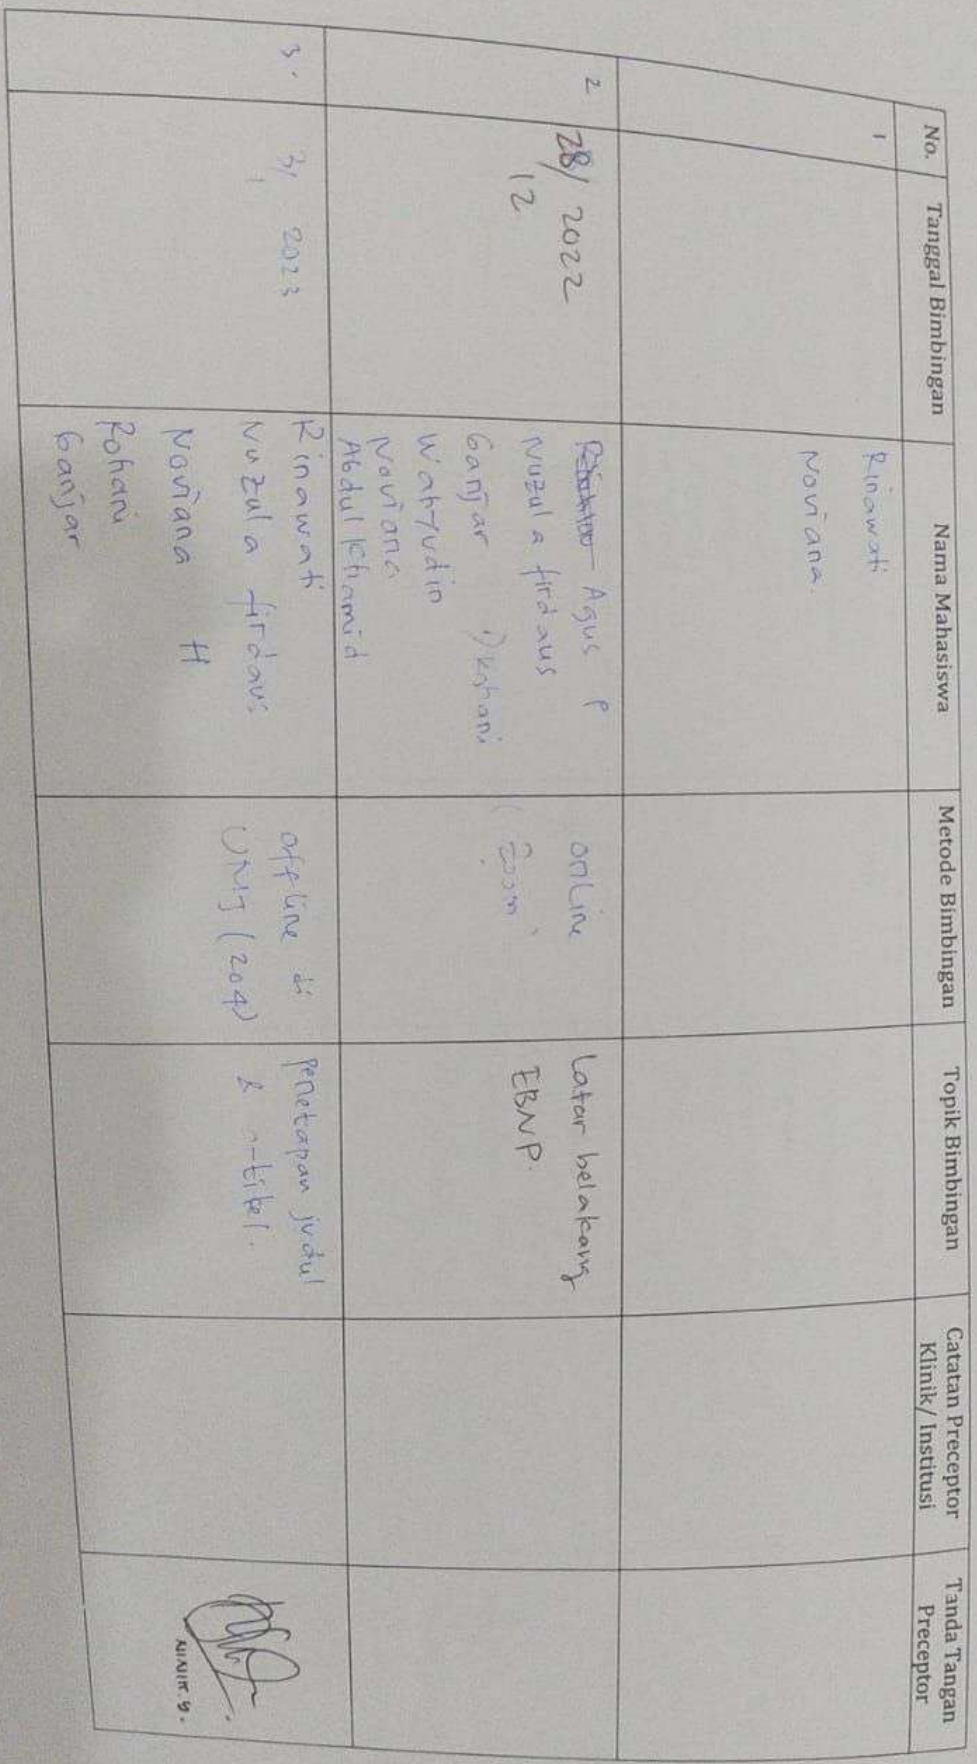 No. Tanggal Bimbingan Nama Mahasiswa Metode Bimbingan Topik Bimbingan Catatan Preceptor Klinik/ Institusi Tanda Tangan Preceptor
1
Rinawati
Noviana.
2
28/12 2022
Agus P
Nuzula firdaus
Ganjar
Wahyudin
Noviana
Abdul Khamid
online
(Zoom)
Latar belakang
EBNP.
3.
3/1 2023
Rinawati
Nuzula firdaus
Noviana H
Rohani
Ganjar
offline di
UMJ (204)
penetapan judul
& artikel.
NINIK.Y.